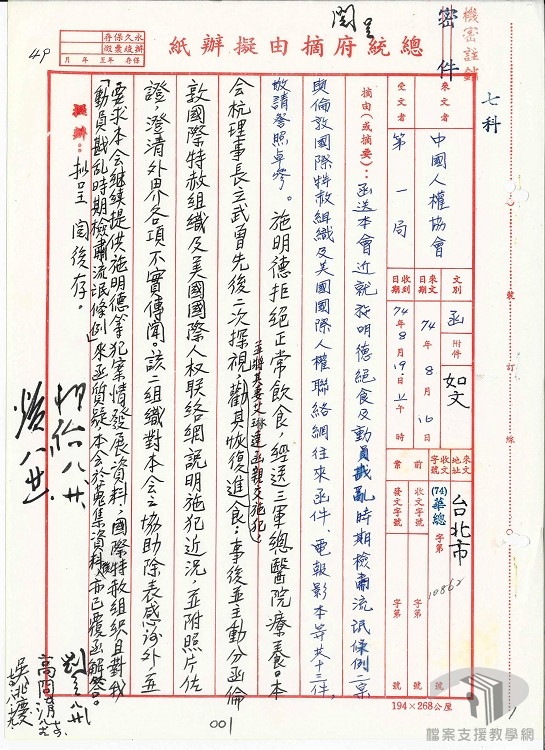 閱呈
密件
機密註銷
總統府摘由擬辦紙
永久保存
保存 年至 年 月
七科
來文者
中國人權協會
受文者
第一局
文別
函
附件
如文
來文日期
74年8月16日
收到日期
74年8月19日上午 時
來文地址
台北市
收文字號
(74)華總字第10862號
前案
收文字號 字第 號
發文字號 字第 號
摘由(或摘要):函送本會近就施明德絕食及動員戡亂時期檢肅流氓條例二案
與倫敦國際特赦組織及美國國際人權聯絡網往來函件、電報影本等共十三件,
敬請詧照卓參。施明德拒絕正常飲食,經送三軍總醫院療養。本
會杭理事長立武曾先後二次探視,勸其恢復進食,並將其妻艾琳達函親交施犯;事後並主動分函倫
敦國際特赦組織及美國國際人权联络網說明施犯近況,並附照片佐
證,澄清外界各項不實傳聞。該二組織對本会之協助除表感谢外並
要求本会继续提供施明德等犯案情發展資料,國際特赦組织且對我
「動員戡乱時期檢肅流氓條例」來函質疑,本会於蒐集資料後亦已覆函解答。
擬辦:拟呈 閱後存。
49
001
1
訂 線
194×268公厘
檔案支援教學網